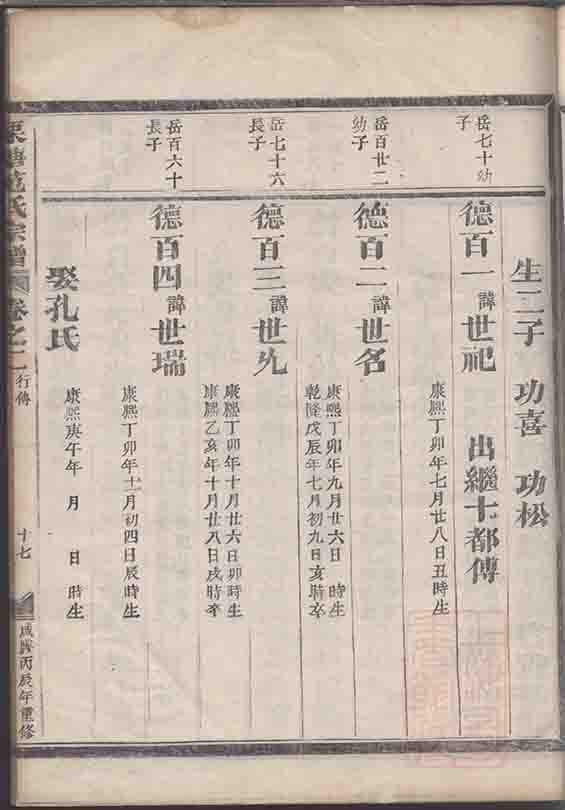 生二子 功喜 功松
岳七十幼子
德百一 諱世祀 出繼十都傳
康熙丁卯年七月廿八日丑時生
岳百廿二幼子
德百二 諱世名
康熙丁卯年九月廿六日 時生
乾隆戊辰年七月初九日亥時卒
岳七十六長子
德百三 諱世允
康熙丁卯年十月廿六日卯時生
康熙乙亥年十月廿八日戌時卒
岳百六十長子
德百四 諱世瑞
康熙丁卯年十一月初四日辰時生
娶孔氏
康熙庚午年 月 日 時生
范氏宗譜 卷之二 行傳
十七
咸豐丙辰年重修